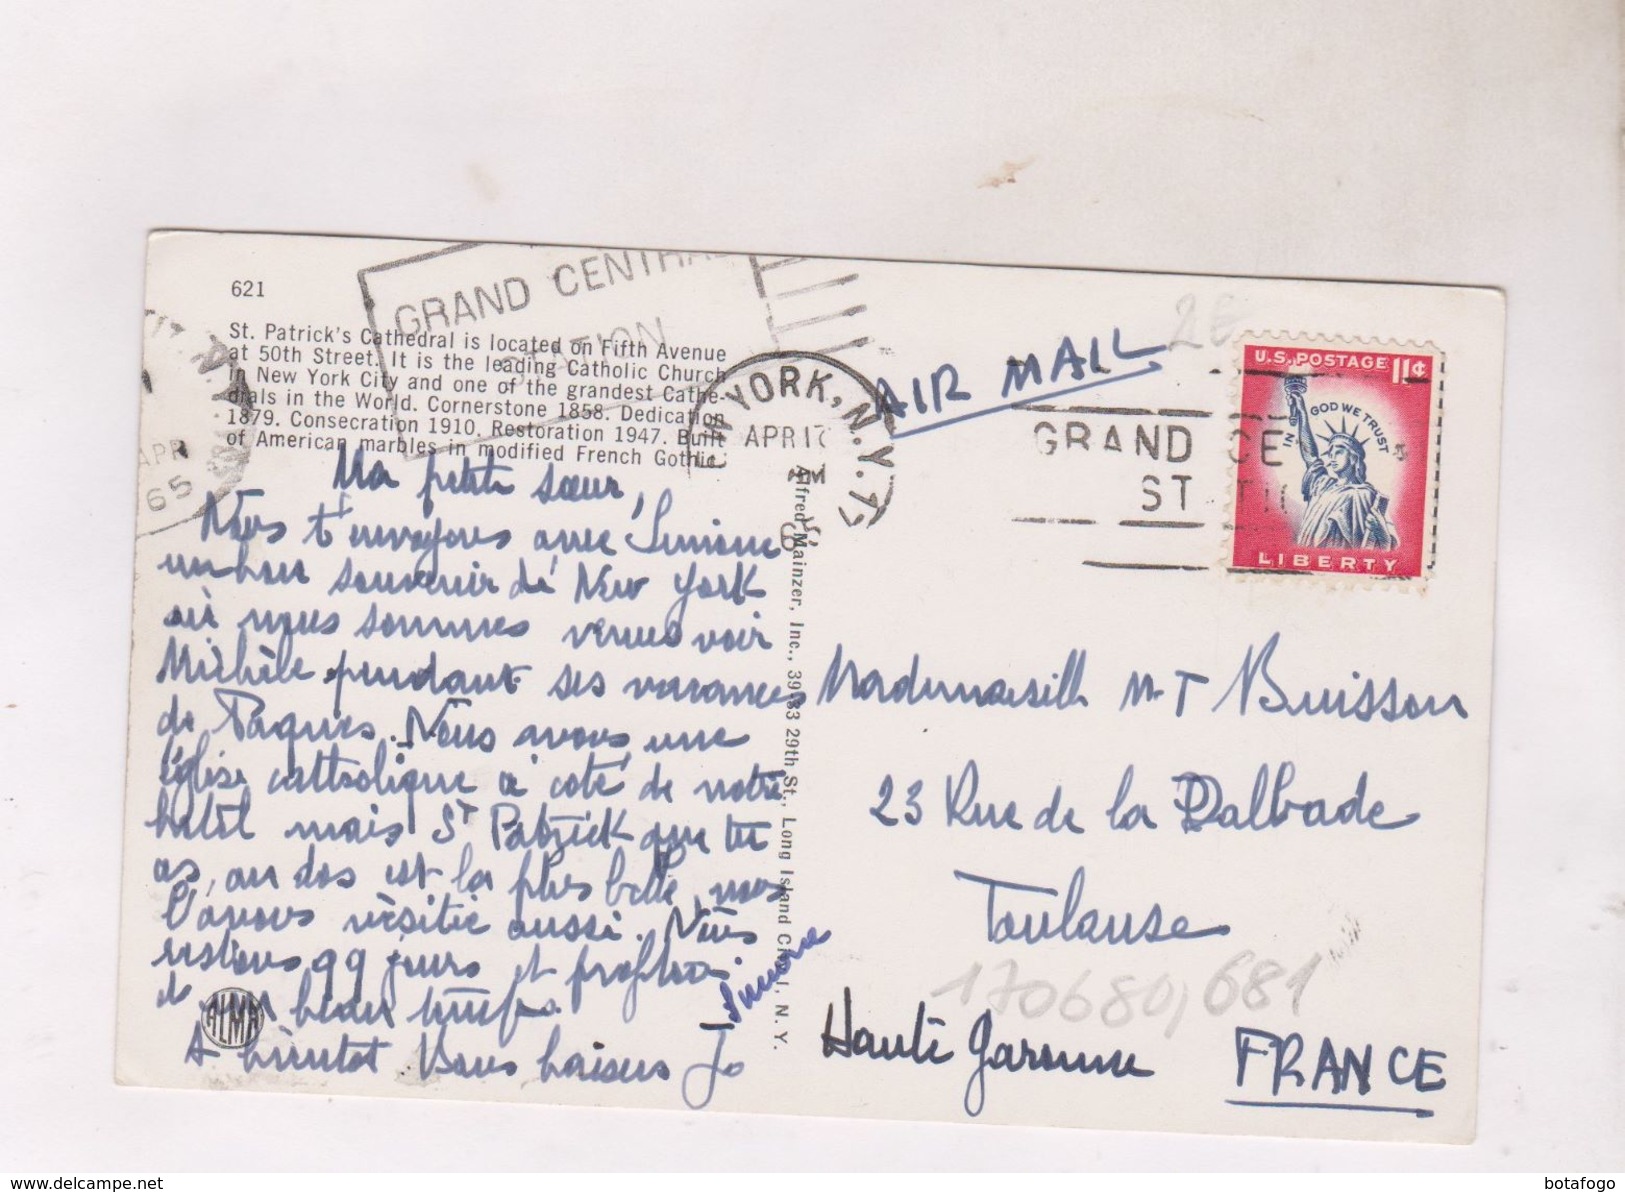 621
St. Patrick's Cathedral is located on Fifth Avenue
at 50th Street. It is the leading Catholic Church
in New York City and one of the grandest Cathe-
drals in the World. Cornerstone 1858. Dedication
1879. Consecration 1910. Restoration 1947. Built
of American marbles in modified French Gothic.
GRAND CENTRAL
STATION
N.Y.
APR
65
YORK, N.Y.
APR 17
AM
AIR MAIL
2€
GRAND CE
ST
U.S. POSTAGE 11¢
IN GOD WE TRUST
LIBERTY
Ma petite sœur,
Nous t'envoyons avec Simone
un bon souvenir de New York
où nous sommes venus voir
Michèle pendant ses vacances
de Pâques. Nous avons une
église catholique à coté de notre
hotel mais St Patrick que tu
as, au dos est la plus belle, nous
l'avons visitée aussi. Nous
restons 99 jours et profitons
du beau temps.
A bientot Bons baisers Jo
Simone
ALMA
Alfred Mainzer, Inc., 39-33 29th St., Long Island City 1, N.Y.
Mademoiselle M-T Buisson
23 Rue de la Dalbade
Toulouse
170680,681
Haute Garonne FRANCE
delcampe.net
botafogo